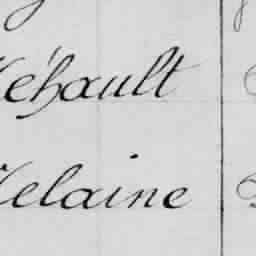 éhault
elaine